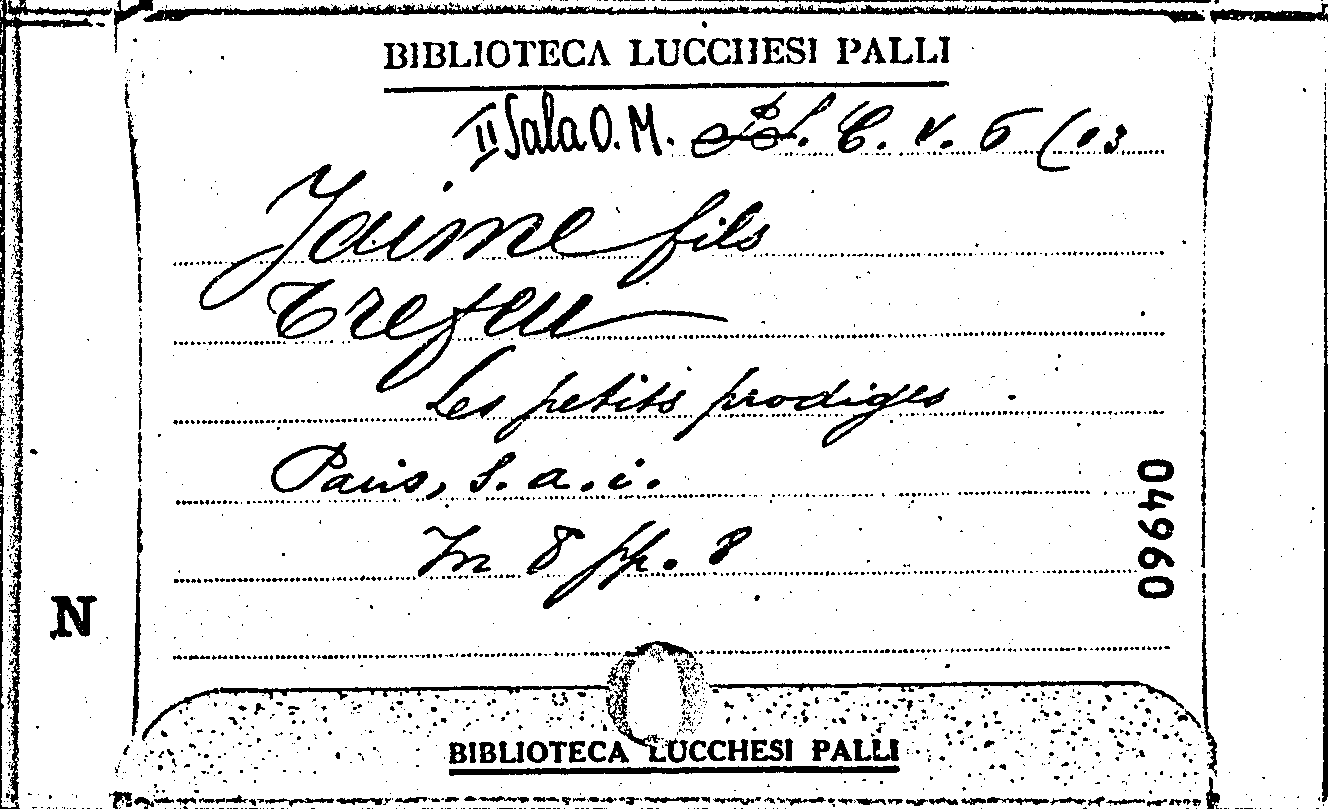 BIBLIOTECA LUCCHESI PALLI
II Sala O. M. C. V. 6 (03
Jaime fils
Trefeu
Les petits prodiges
Paris, s. a. i.
In 8 pp. 8
04960
N
BIBLIOTECA LUCCHESI PALLI